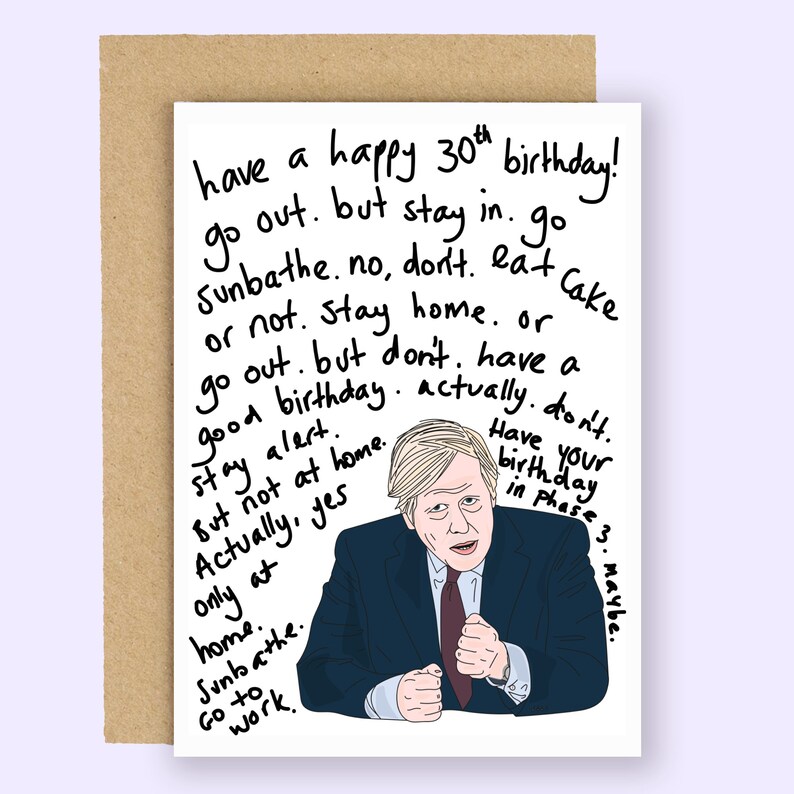 have a happy 30th birthday!
go out. but stay in. go
sunbathe. no, don't. eat cake
or not. stay home. or
go out. but don't. have a
good birthday. actually. don't.
stay alert.
But not at home.
Actually, yes
only at
home.
sunbathe.
Go to
work.
Have your
birthday
in Phase 3. maybe.